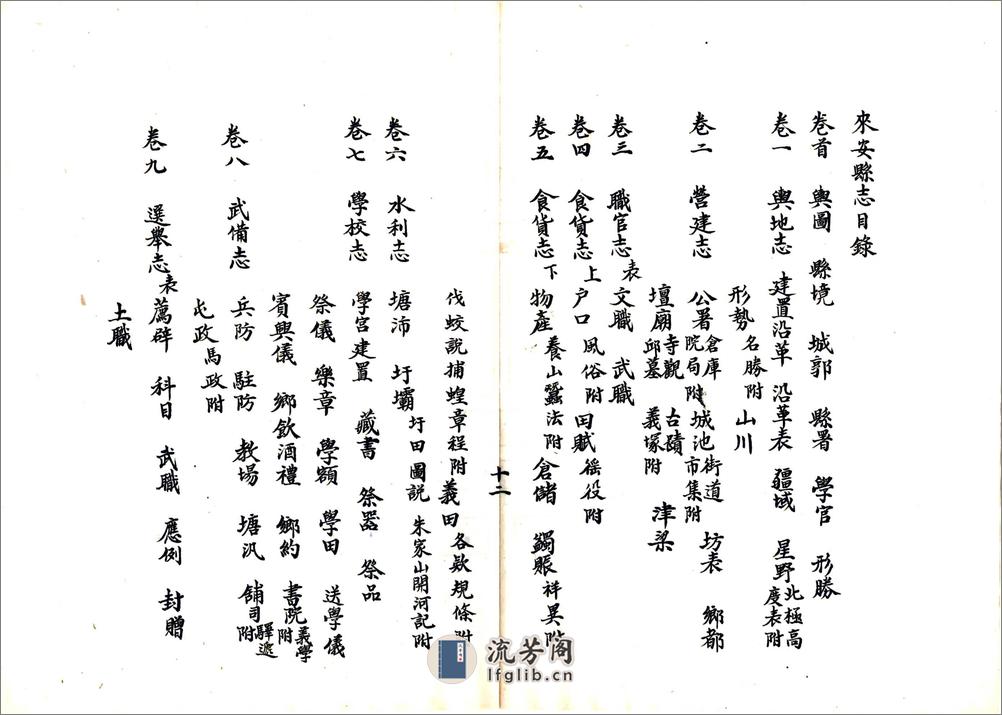 來安縣志目錄
卷首 輿圖 縣境 城郭 縣署 學官 形勝
卷一 輿地志 建置沿革 沿革表 疆域 星野北極高度表附
形勢名勝附 山川
卷二 營建志 公署倉庫院局附 城池街道市集附 坊表 鄉都
壇廟寺觀邱墓 古蹟義塚附 津梁
卷三 職官志表 文職 武職
卷四 食貨志上 户口風俗附 田賦徭役附
卷五 食貨志下 物產養山蠶法附 倉儲 蠲賑祥異附
十二
伐蛟說捕蝗章程附 義田各欵規條附
卷六 水利志 塘沛 圩壩圩田圖説 朱家山開河記附
卷七 學校志 學宮建置 藏書 祭器 祭品
祭儀 樂章 學額 學田 送學儀
賓興儀 鄉飲酒禮 鄉約 書院義學附
卷八 武備志 兵防 駐防 教場 塘汛 舖司驛遞附
屯政馬政附
卷九 選舉志表 薦辟 科目 武職 應例 封贈
土職
流芳阁
lfglib.cn